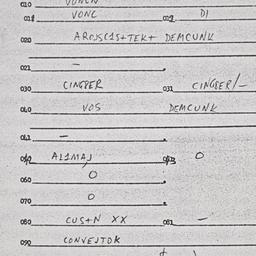 010
011 VONC 012 DI
020 DEMCUNK
021 –
030 CINGPER 031 CINGPER/–
040 VOS DEMCUNK
041 –
042 AL1MAJ 043 O
060 O
070 O
080 CUS+N XX 081 –
090 CONVEJTOK